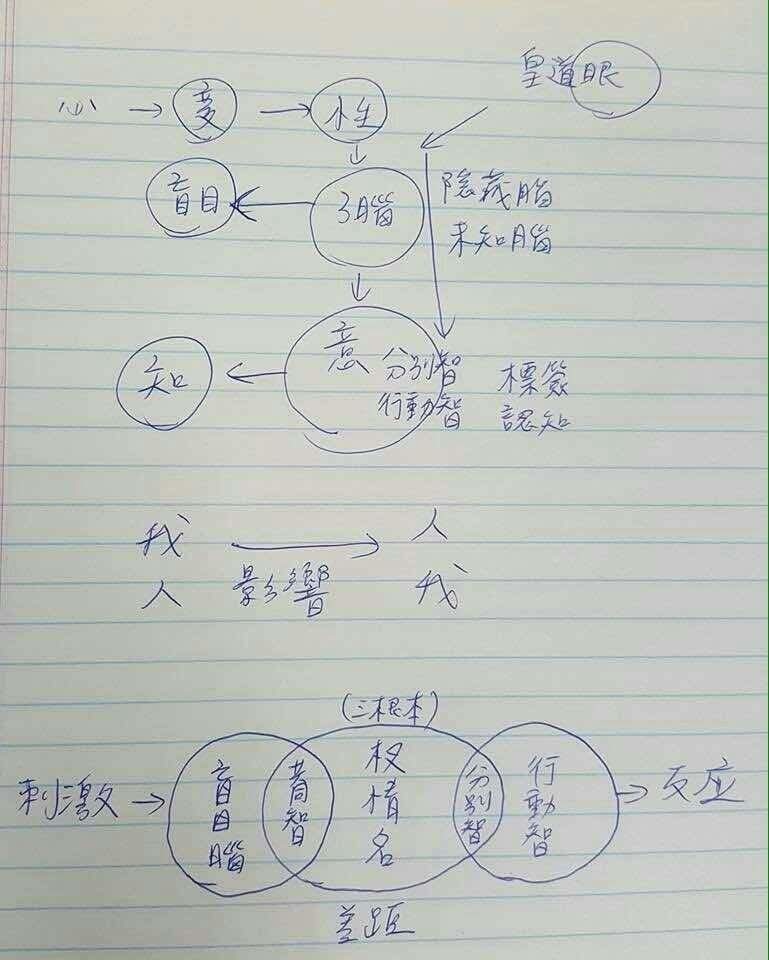 皇道眼
心 → → 性
盲目 ← 3腦
隱藏腦
未知腦
意
知 ← 分別智 標簽
行動智 認知
我 → 人
人 影響 我
(三根本)
刺激 → 盲目腦 权情名 分別智 行動智 → 反应
差距